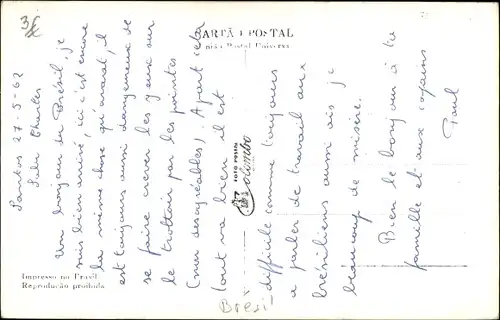 3£
CARTÃO POSTAL
União Postal Universal
Santos 27-5-62
Salu Charles
Un bonjour du Brésil, je
suis bien arrivé, ici c'est encore
la même chose qu'avant, il
est toujours aussi dangereux de
se faire crever les yeux sur
le trottoir par les pointes
(mon désagréables). Apart cela
tout va bien il est
difficile comme toujours
a parler de travail aux
brésiliens aussi ais je
beaucoup de misère.
Bien le bonjour à ta
famille et aux copains
Paul
FOTO POSTAL
Colombo
Impresso no Brasil
Reprodução proibida
Brésil